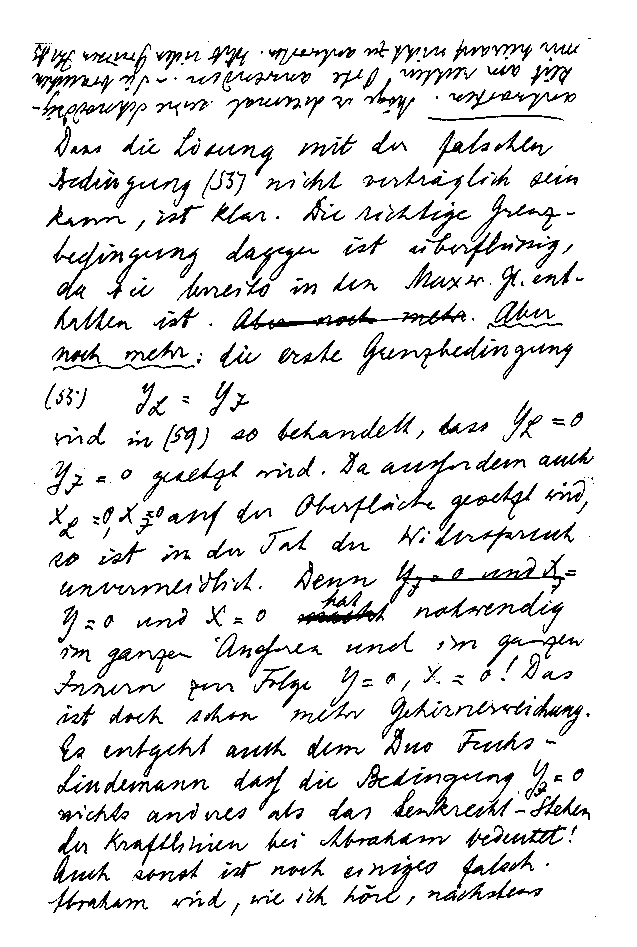 antworten. Möge er diesmal seine Schneidig-
keit am rechten Orte anwenden. – Sie brauchen
mir hierauf nicht zu antworten.
Dass die Lösung mit der falschen
Bedingung (55) nicht verträglich sein
kann, ist klar. Die richtige Grenz-
bedingung dagegen ist überflüssig,
da sie bereits in den Maxw. Gl. ent-
halten ist. Aber noch mehr. Aber
noch mehr: die erste Grenzbedingung
(55) Y_L = Y_J
wird in (59) so behandelt, dass Y_L = 0
Y_J = 0 gesetzt wird. Da ausserdem auch
X_L = 0, X_J = 0 auf der Oberfläche gesetzt wird,
so ist in der Tat der Widerspruch
unvermeidlich. Denn Y_J = 0 und X_J =
Y = 0 und X = 0 hat notwendig
im ganzen Äusseren und im ganzen
Innern zur Folge Y = 0, X = 0! Das
ist doch schon mehr Gehirnerweichung.
Es entgeht auch dem Duo Fuchs-
Lindemann dass die Bedingung Y_J = 0
nichts anderes als das Senkrecht-Stehen
der Kraftlinien bei Abraham bedeutet!
Auch sonst ist noch einiges falsch.
Abraham wird, wie ich höre, nächstens